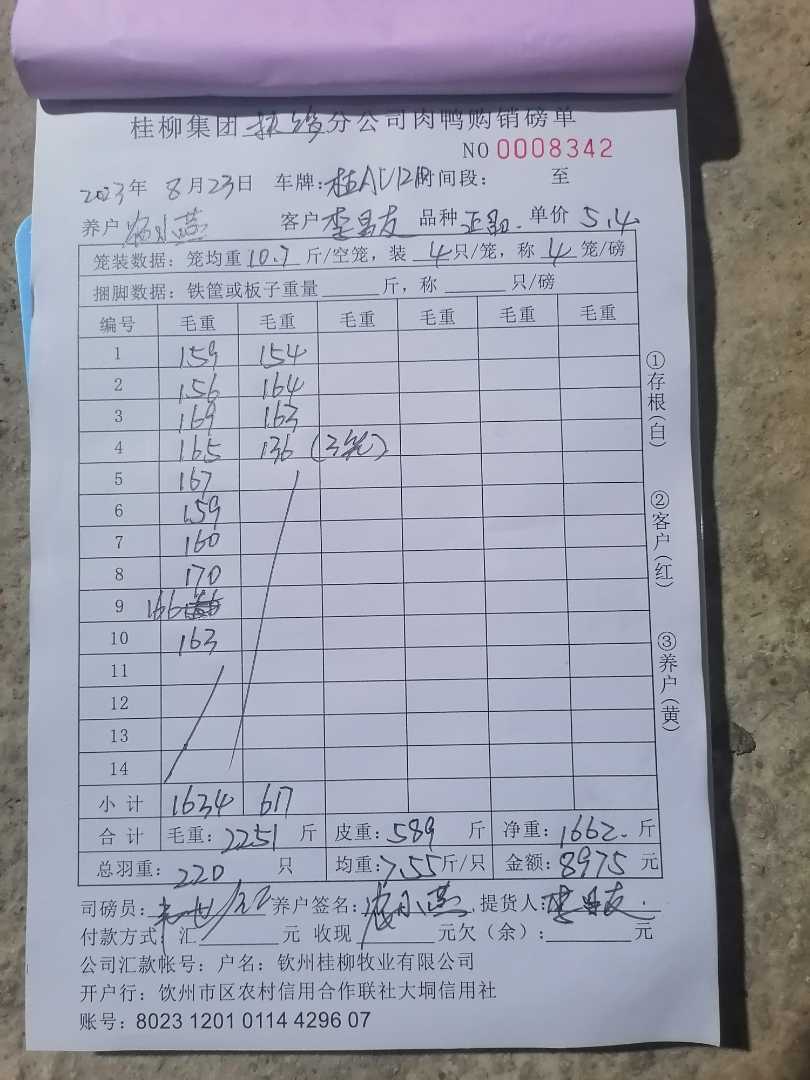 桂柳集团扶绥分公司肉鸭购销磅单
NO 0008342
2023年 8月23日 车牌: 时间段: 至
养户 小燕 客户 李昌友 品种 单价 5.4
笼装数据: 笼均重 10.7 斤/空笼, 装 4 只/笼, 称 4 笼/磅
捆脚数据: 铁筐或板子重量 斤, 称 只/磅
编号 毛重 毛重 毛重 毛重 毛重 毛重
1 159 154
2 156 164
3 169 163
4 165 136 (3笼)
5 167
6 159
7 160
8 170
9 166
10 163
11
12
13
14
小计 1634 617
合计 毛重: 2251 斤 皮重: 589 斤 净重: 1662. 斤
总羽重: 220 只 均重: 7.55 斤/只 金额: 8975 元
司磅员: 养户签名: 小燕 提货人: 李昌友
付款方式: 汇 元 收现 元欠(余): 元
公司汇款帐号: 户名: 钦州桂柳牧业有限公司
开户行: 钦州市区农村信用合作联社大垌信用社
账号: 8023 1201 0114 4296 07
①存根(白)
②客户(红)
③养户(黄)